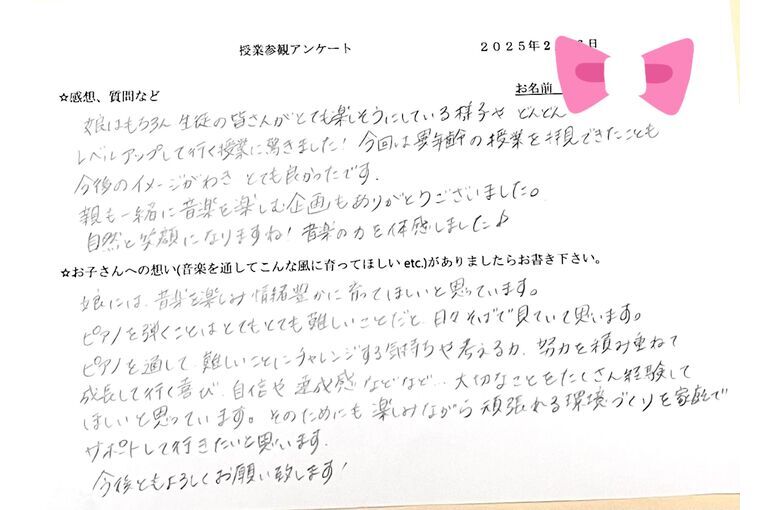 授業参観アンケート 2025年2 日
☆感想、質問など お名前
娘はもちろん 生徒の皆さんがとても楽しそうにしている様子や どんどん
レベルアップして行く授業に驚きました！今回は異年齢の授業を拝見できたことも
今後のイメージがわき とても良かったです．
親も一緒に音楽を楽しむ企画もありがとうございました。
自然と笑顔になりますね！音楽の力を体感しました♪
☆お子さんへの想い(音楽を通してこんな風に育ってほしい etc.)がありましたらお書き下さい。
娘には、音楽を楽しみ 情緒豊かに育ってほしいと思っています。
ピアノを弾くことはとてもとても難しいことだと、日々そばで見ていて思います。
ピアノを通して、難しいことにチャレンジする気持ちや考える力、努力を積み重ねて
成長して行く喜び、自信や達成感などなど… 大切なことをたくさん経験して
ほしいと思っています。そのためにも 楽しみながら 頑張れる環境づくりを家庭で
サポートして行きたいと思います．
今後ともよろしくお願い致します！